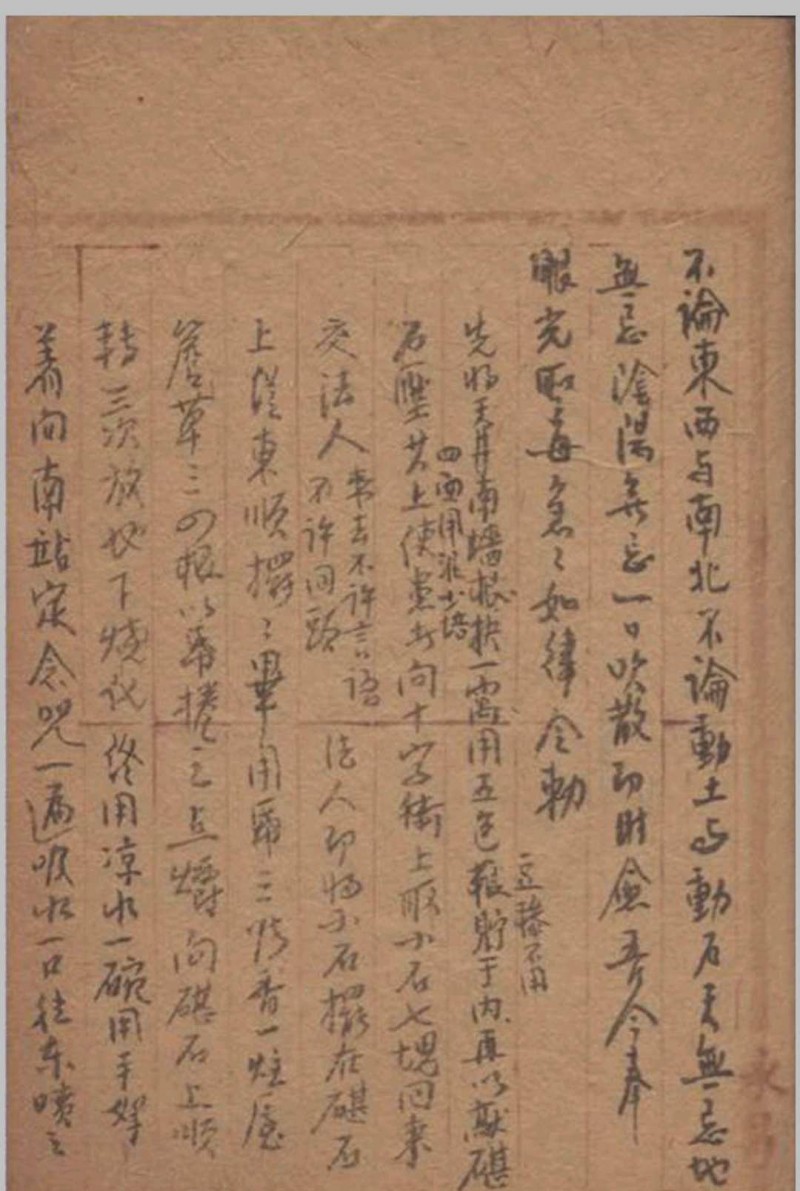 不論東西与南北不論動土与動石天無忌地
無忌陰陽無忌一口吹散即時愈吾今奉
眼光取毒急〻如律令勅
先將天井南墻根挟一窩用五色粮貯于内再以
四面用泥土培
豆糁不用
石壓其上使患者向十字街上取小石七塊回来
交法人
来去不許言語
不許回頭
法人即將小石擺在碪石
上從東順擺〻畢用帋三張香一炷屋
簷草三四根以帋捲之点燃向碪石上順
轉三次放地下燒化終用凉水一碗用手拏
着向南站定念咒一遍吸水一口往東噴之